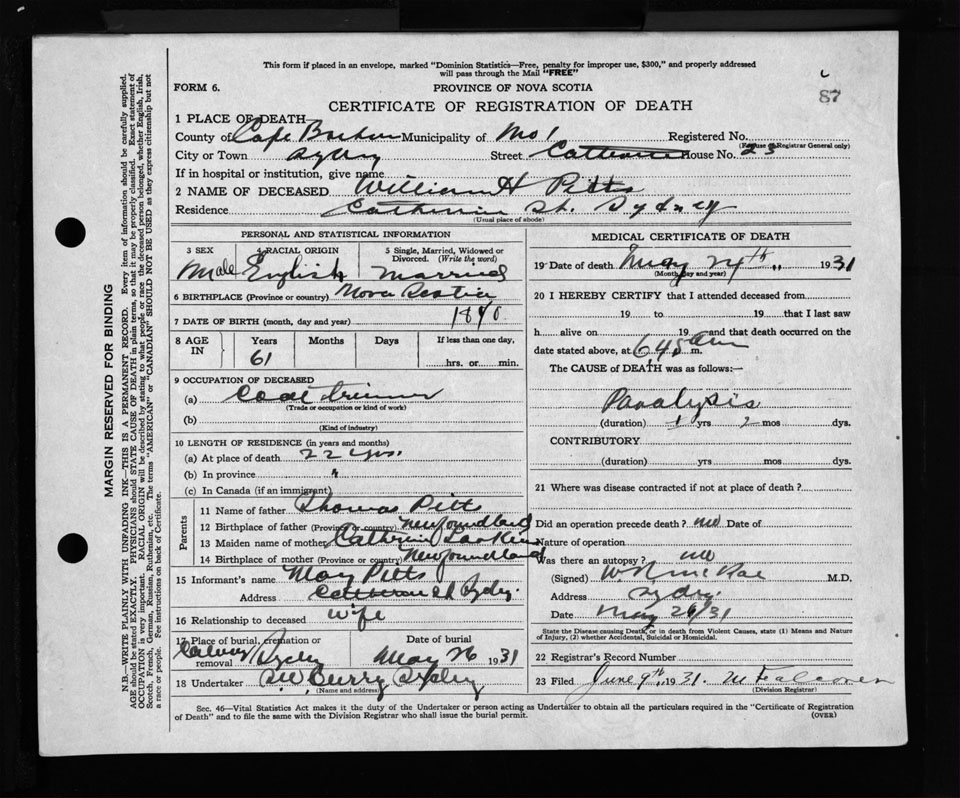 This form if placed in an envelope, marked "Dominion Statistics—Free, penalty for improper use, $300," and properly addressed
will pass through the Mail "FREE"
FORM 6.
PROVINCE OF NOVA SCOTIA
87
CERTIFICATE OF REGISTRATION OF DEATH
1 PLACE OF DEATH
County of Cape Breton Municipality of No 1 Registered No.
(For use of Registrar General only)
City or Town Sydney Street Catherine House No. 23
If in hospital or institution, give name
2 NAME OF DECEASED William H Pitts
Residence Catherine St. Sydney
(Usual place of abode)
PERSONAL AND STATISTICAL INFORMATION
3 SEX 4 RACIAL ORIGIN 5 Single, Married, Widowed or
Divorced. (Write the word)
Male English Married
6 BIRTHPLACE (Province or country) Nova Scotia
7 DATE OF BIRTH (month, day and year) 1870
8 AGE IN Years Months Days If less than one day,
61 hrs. or min.
9 OCCUPATION OF DECEASED
(a) Coal trimmer
(Trade or occupation or kind of work)
(b)
(Kind of industry)
10 LENGTH OF RESIDENCE (in years and months)
(a) At place of death 22 yrs.
(b) In province "
(c) In Canada (if an immigrant)
Parents
11 Name of father Thomas Pitts
12 Birthplace of father (Province or country) Newfoundland
13 Maiden name of mother Catherine Larkin
14 Birthplace of mother (Province or country) Newfoundland
15 Informant's name May Pitts
Address Catherine St Sydney.
16 Relationship to deceased wife
17 Place of burial, cremation or Date of burial
removal Calvary Sydney May 26 1931
18 Undertaker Curry Sydney
(Name and address)
MEDICAL CERTIFICATE OF DEATH
19 Date of death May 24th 1931
(Month, day and year)
20 I HEREBY CERTIFY that I attended deceased from
19 to 19 that I last saw
h alive on 19 and that death occurred on the
date stated above, at 6.45 am m.
The CAUSE of DEATH was as follows:—
Paralysis
(duration) 1 yrs 2 mos dys.
CONTRIBUTORY
(duration) yrs mos dys.
21 Where was disease contracted if not at place of death?
Did an operation precede death? no Date of
Nature of operation
Was there an autopsy? no
(Signed) W R McRae M.D.
Address Sydney.
Date May 26/31
State the Disease causing Death, or in death from Violent Causes, state (1) Means and Nature
of Injury, (2) whether Accidental, Suicidal or Homicidal.
22 Registrar's Record Number
23 Filed June 9th, 1931. M Falconer
(Division Registrar)
Sec. 46—Vital Statistics Act makes it the duty of the Undertaker or person acting as Undertaker to obtain all the particulars required in the "Certificate of Registration
of Death" and to file the same with the Division Registrar who shall issue the burial permit.
(OVER)
MARGIN RESERVED FOR BINDING
N.B.—WRITE PLAINLY WITH UNFADING INK—THIS IS A PERMANENT RECORD. Every item of information should be carefully supplied.
AGE should be stated EXACTLY. PHYSICIANS should STATE CAUSE OF DEATH in plain terms, so that it may be properly classified. Exact statement of
OCCUPATION is very important. RACIAL ORIGIN will be described by stating to what people or race the deceased person belonged, whether English, Irish,
Scotch, French, German, Russian, Ruthenian, etc. The terms "AMERICAN" or "CANADIAN" SHOULD NOT BE USED as they express citizenship but not
a race or people. Fee instructions on back of Certificate.